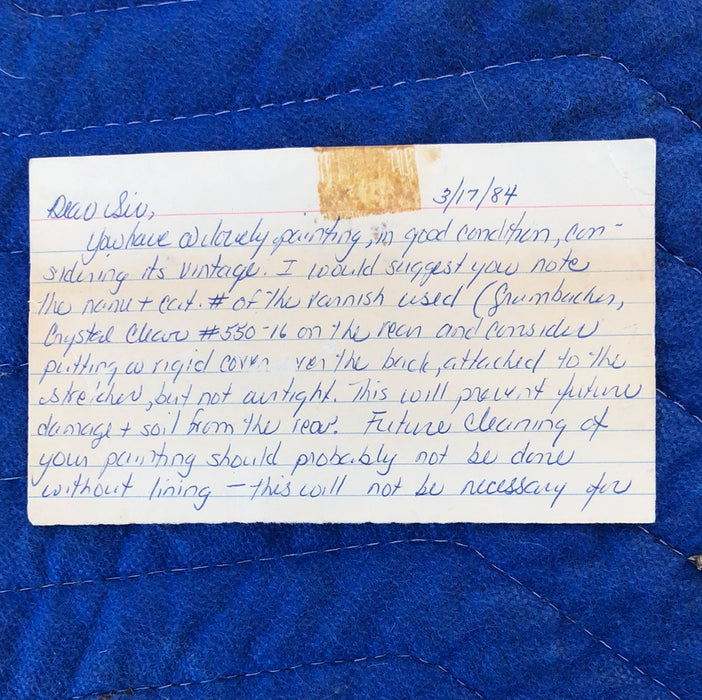 3/17/84
Dear Sir,
You have a lovely painting, in good condition, con-
sidering its vintage. I would suggest you note
the name + cat. # of the varnish used (Grumbacher,
Crystal Clear #550-16 on the rear and consider
putting a rigid cover ver the back, attached to the
stretcher, but not airtight. This will prevent future
damage + soil from the rear. Future cleaning of
your painting should probably not be done
without lining — this will not be necessary for